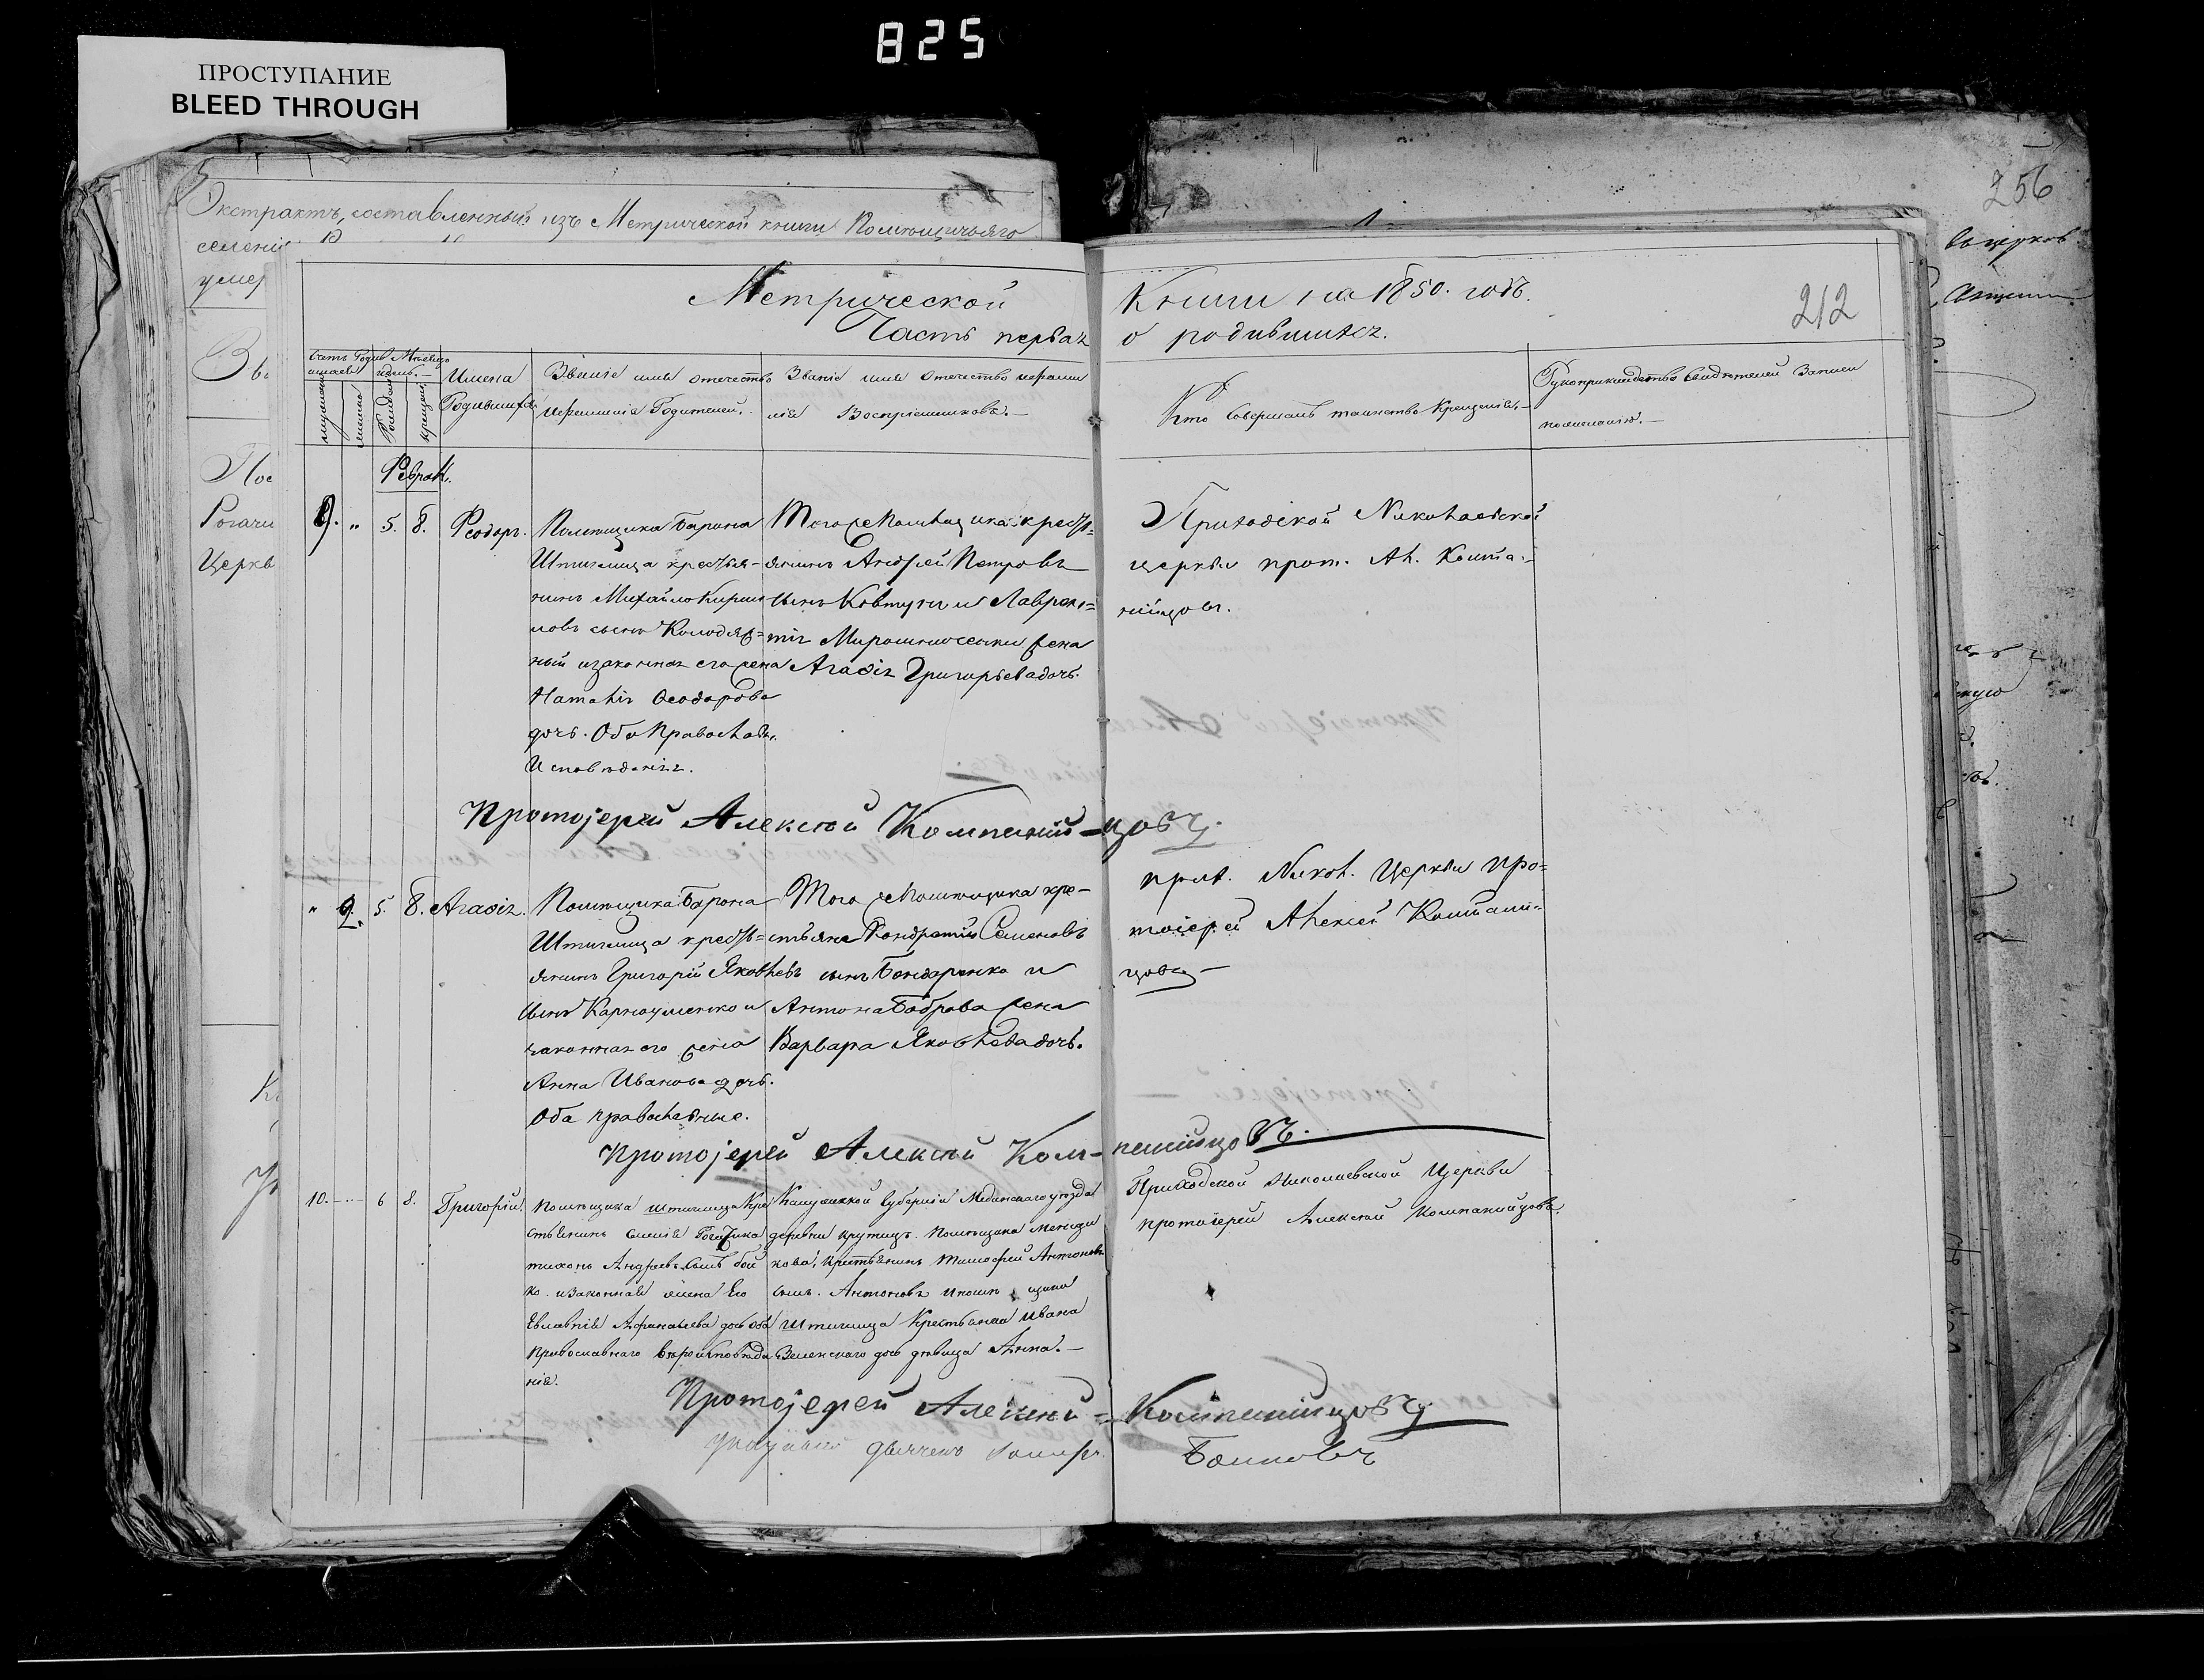 825
ПРОСТУПАНИЕ
BLEED THROUGH
256
Экстрактъ, составленный изъ Метрической книги Помѣщичьяго
селенія
умер
Рогачи
Церкв
212
Метрической Книги на 1850. годъ.
Часть первая о родившихся.
Счетъ Родив
шихся
Мѣсяцъ
и день.
мужескаго
женска
Рожденія
крещенія
Имена
Родившихся
Званіе имя отечество
и фамилія Родителей.
Званіе имя отечество и фами
лія Воспріемниковъ.
Кто совершалъ таинство Крещенія.
Рукоприкладство свидѣтелей записи
по желанію.
Феврал.
9. " 5. 8. Феодоръ.
Помѣщика Барона
Штиглица крестья-
нинъ Михайло Кирил
ловъ сынъ Колодяж=
ный и законная его жена
Наталія Феодорова
дочь. Оба Православн.
Исповѣданія.
Того же Помѣщика крест=
янинъ Андрей Петровъ
сынъ Ковтунъ и Лаврен=
тія Мирошниченки жена
Агафія Григорьева дочь.
Приходской Николаевской
церкви прот. Ал. Компа=
нійцовъ.
Протоіерей Алексѣй Компаній-цовъ.
" 9. 5. 8. Агафія.
Помѣщика Барона
Штиглица крестья=
янинъ Григорій Яковлевъ
сынъ Карнауменко и
законная его жена
Анна Иванова дочь.
Оба православные.
Того же Помѣщика кре-
стьяне Кондратій Семеновъ
сынъ Бондаренко и
Антона Боброва жена
Варвара Яковлева дочь.
прих. Никол. Церкви про=
тоіерей Алексѣй Компаній=
цовъ
Протоіерей Алексѣй Ком-панійцовъ.
10. " 6 8. Григорій.
помѣщика Штиглица Кре
стьянинъ селенія Рогачика
тихонъ Андреевъ сынъ бой
ко. и законная жена Его
Евлампія Афанасьева дочь оба
православнаго вѣроисповѣда
нія.
Калужской Губерніи Мединскаго уезда
деревни крутицъ. помѣщика
кова, крестьянинъ тимофей Антоновъ
сынъ. Антоновъ и помѣщика
Штиглица Крестьянина ивана
Зеленскаго дочь дѣвица Анна.
Приходской Николаевской Церкви
протоіерей Алексѣй Компанійцовъ.
Протоіерей Алексѣй = Компанійцовъ